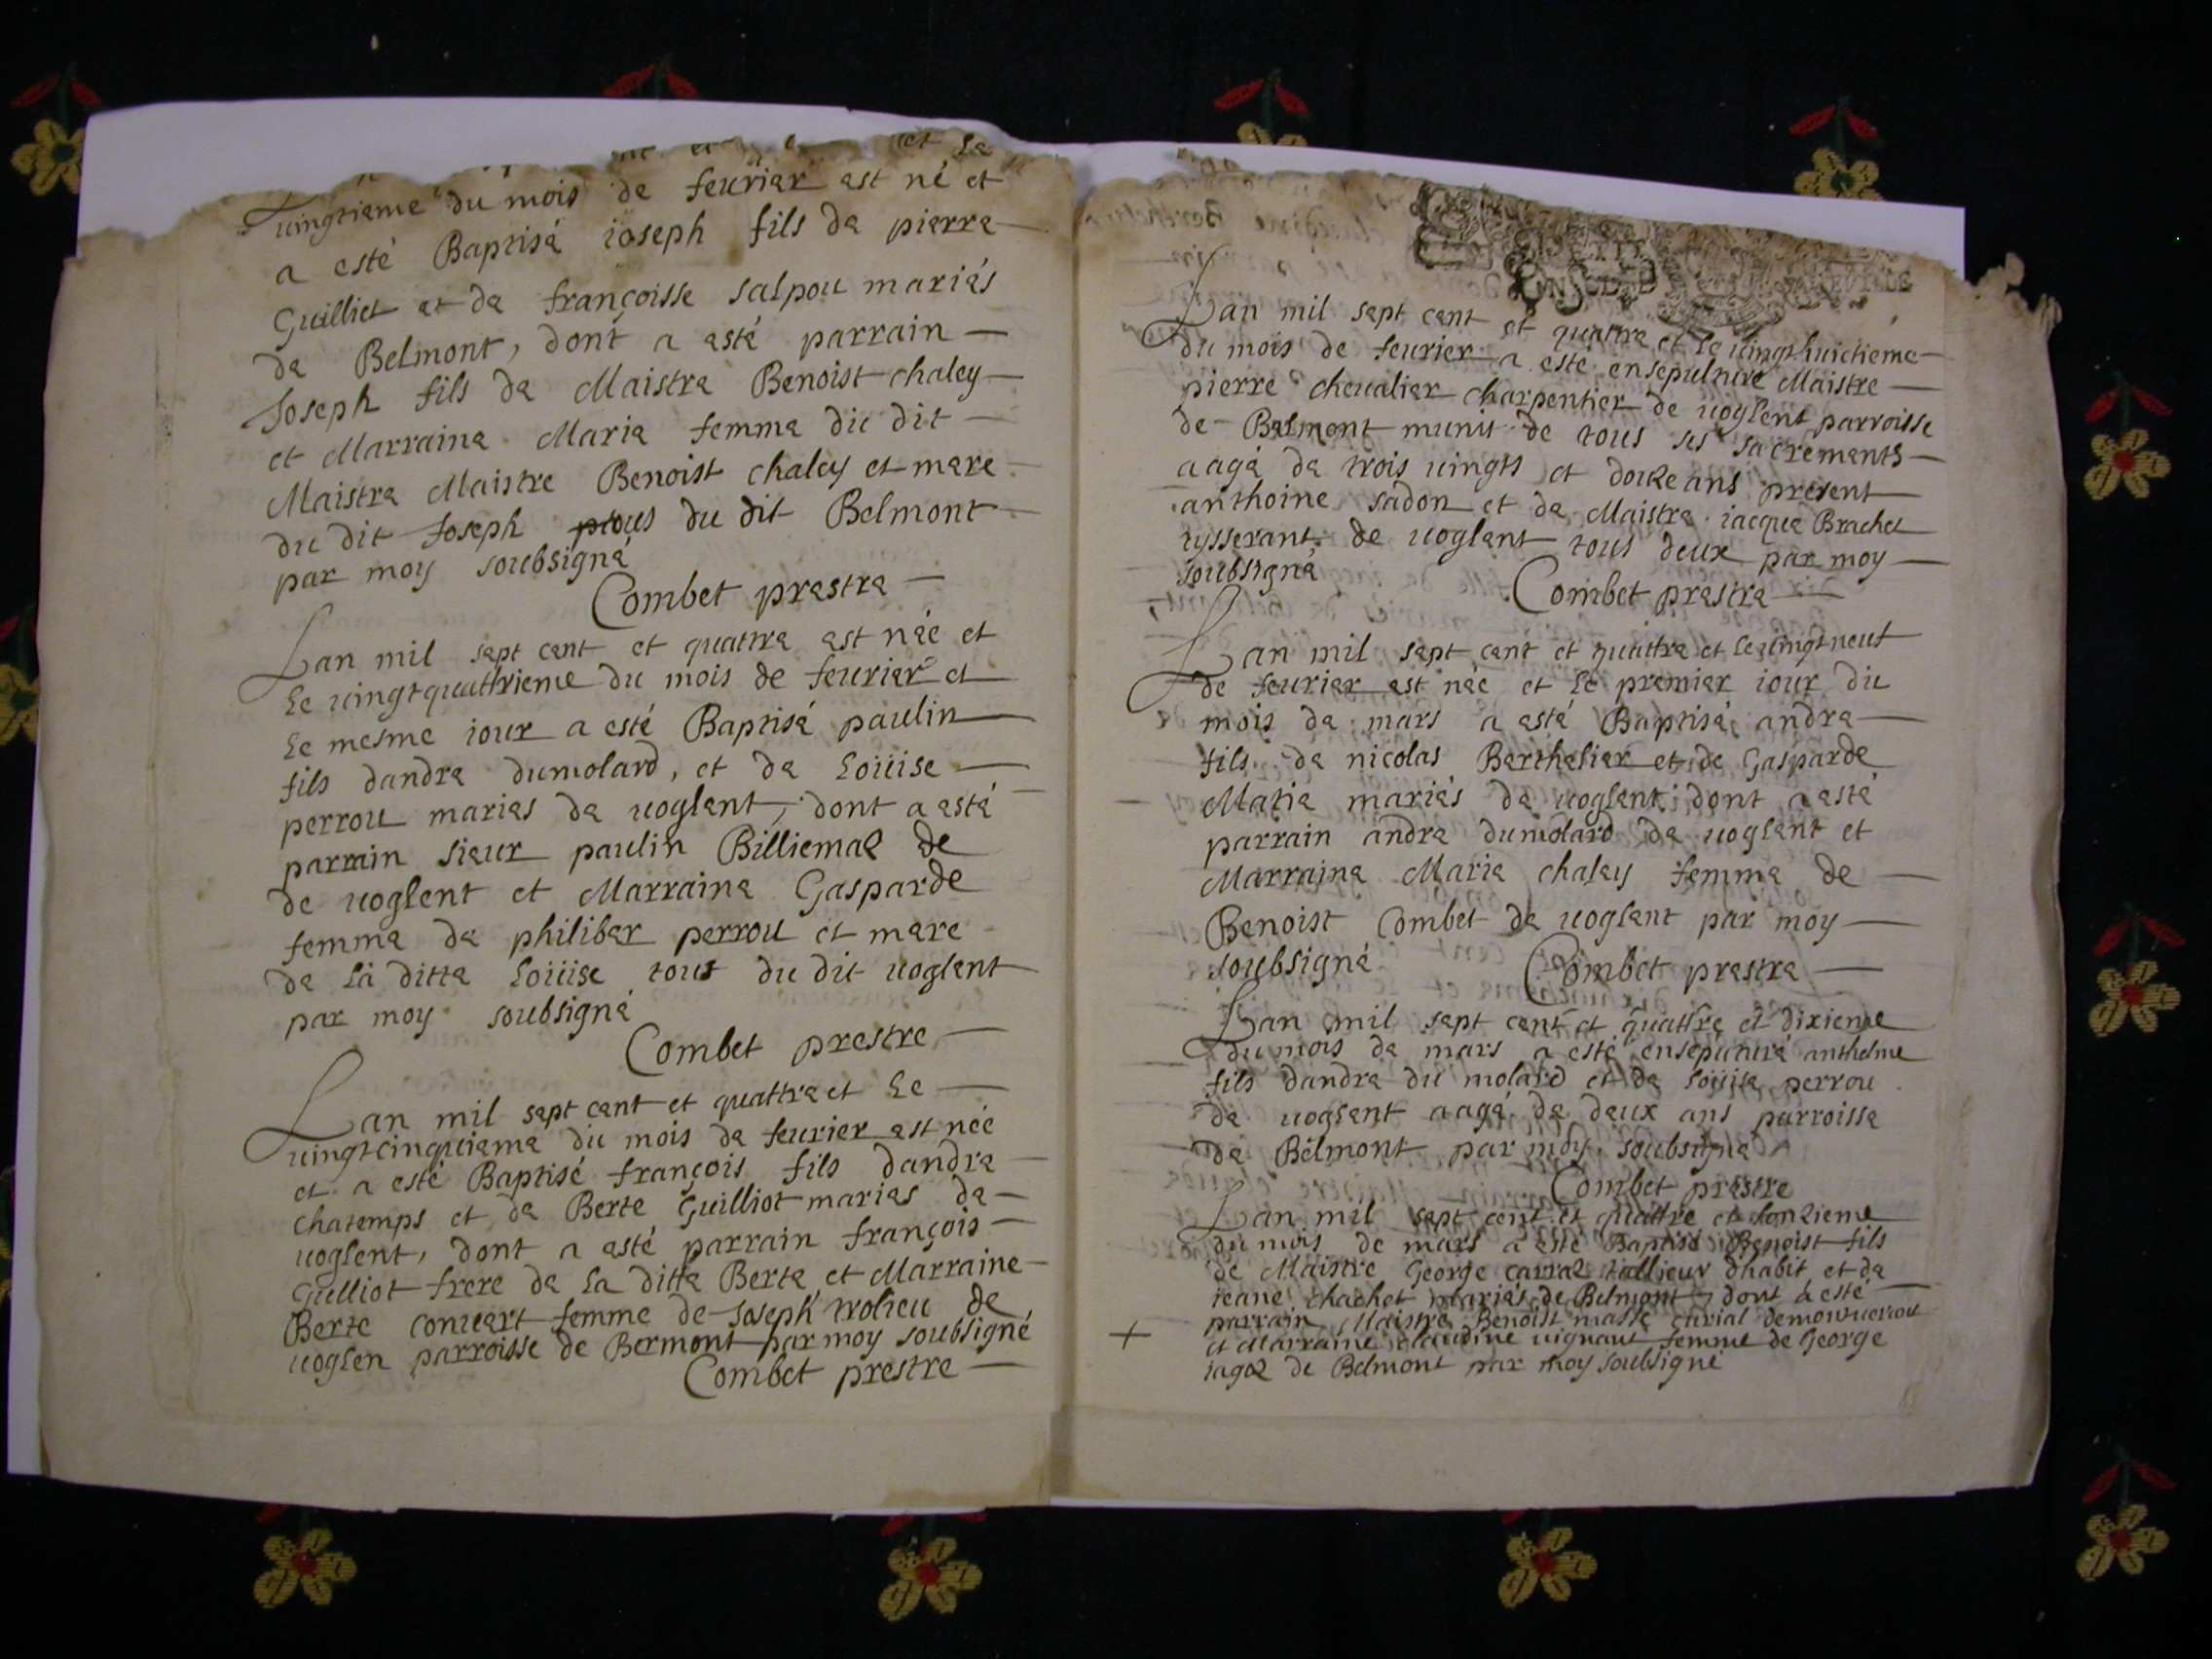 et le
uingtieme du mois de feurier est né et
a esté Baptisé ioseph fils de pierre
Guilliet et de françoisse salpou mariés
de Belmont, dont a esté parrain
Joseph fils de Maistre Benoist chaley
et Marraine Marie femme du dit
Maistre Maistre Benoist chaley et mere
du dit Joseph tous du dit Belmont
par moy soubsigné
Combet prestre
Lan mil sept cent et quattre est née et
le uingtquattrieme du mois de feurier et
le mesme iour a esté Baptisé paulin
fils dandre dumolard, et de Loüise
perrou maries de uoglent, dont a esté
parrain sieur paulin Billiemaz de
de uoglent et Marraine Gasparde
femme de philiber perrou et mere
de la ditte Loüise tous du dit uoglent
par moy soubsigné
Combet prestre
Lan mil sept cent et quattre et le
uingtcinquieme du mois de feurier est née
et a esté Baptisé françois fils dandre
chatemps et de Berte Guilliot maries de
uoglent, dont a esté parrain françois
Gulliot frere de la ditte Berte et Marraine
Berte conuert femme de Joseph trolieu de
uoglen parroisse de Bermont par moy soubsigné
Combet prestre
Lan mil sept cent et quattre et le uingthuictieme
du mois de feurier a esté ensepulturé Maistre
pierre cheualier charpentier de uoglent parroisse
de Belmont munit de tous ses sacrements
aagé de trois uingts et douze ans present
anthoine sadon et de Maistre iacque Brachet
tysserant de uoglent tous deux par moy
soubsigné
Combet prestre
Lan mil sept cent et quattre et le uingtneuf
de feurier est née et le premier iour du
mois de mars a esté Baptisé andre
fils de nicolas Berthelier et de Gasparde
Matie mariés de uoglent dont a esté
parrain andre dumolard de uoglent et
Marraine Marie chaley femme de
Benoist Combet de uoglent par moy
soubsigné
Combet prestre
Lan mil sept cent et quattre et dixieme
du mois de mars a esté ensepulturé anthelme
fils dandre du molard et de Loüise perrou
de uoglent aagé de deux ans parroisse
de Belmont par moy soubsigné
Combet prestre
Lan mil sept cent et quattre et lonzieme
du mois de mars a esté Baptisé Benoist fils
de Maistre George carraz tallieur dhabit et de
ieane chachet mariés de Belmont dont a esté
parrain Maistre Benoist masse curial
+ et Marraine claudine uignaut femme de George
iagoz de Belmont par moy soubsigné